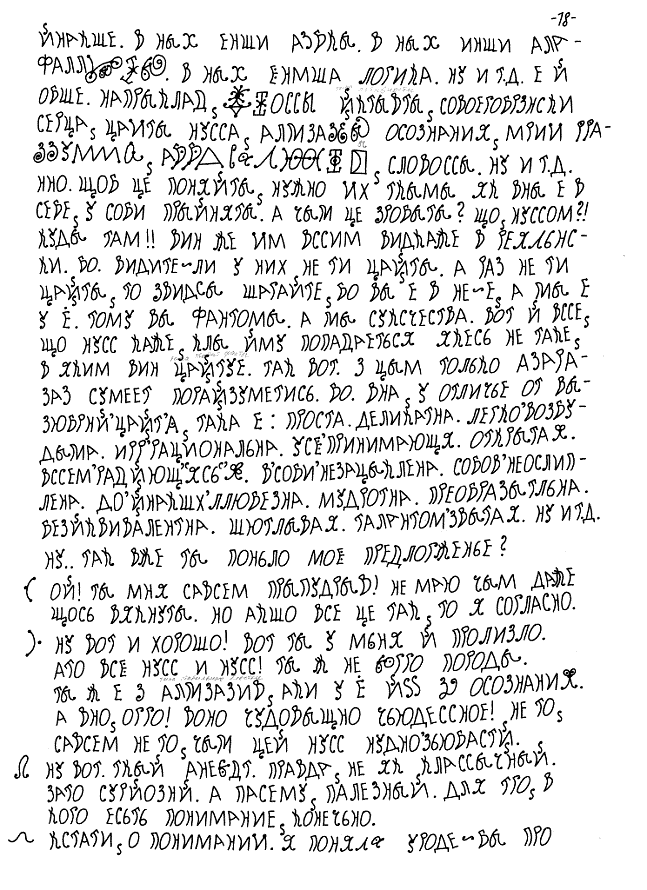 -18-
ЙНАКШЕ. В НЫХ ЕНШИ АЗВКЫ. В НЫХ ИНШИ АЛР-
ФАЛЛ . В НЫХ ЕНМША ЛОГИКА. НУ И Т.Д. Е Й
ОВШЕ. НАПРЫКЛАД, СОВОЕОБРЗНСКИ
СЕРЦА, ЦАЙТЫ НУССА, ОСОЗНАНИЯ, МРИИ РРА-
ЗЗУММА, СЛОВОССЫ. НУ И Т.Д.
ННО. ЩОБ ЦЕ ПОНЯЙТЫ, НУЖНО ИХ ТКЫМЫ ЯК ВНЫ Е В
СЕБЕ, У СОВИ ПРЫЙНЯТЫ. А ЧЫМ ЦЕ ЗРОВЫТЫ? ЩО, НУССОМ?!
КУДЫ ТАМ!! ВИН ЖЕ ИМ ВССИМ ВИДКАЖЕ В РЕЯЛЬНС-
КИ. ВО. ВИДИТЕ~ЛИ У НИХ, НЕ ТИ ЦАЙТЫ. А РАЗ НЕ ТИ
ЦАЙТЫ, ТО ЗВИДСЫ ШАТАЙТЕ, ВО ВЫ Е В НЕ~Е, А МЫ Е
У Е. ТОМУ ВЫ ФАНТОМЫ. А МЫ СУКСЧЕСТВА. ВОТ Й ВССЕ,
ЩО НУСС КАЖЕ, КЛЫ ЙМУ ПОПАДРЕТЬСЯ ЯКЕСЬ НЕ ТАКЕ,
В ЯКИМ ВИН ЦАЙТУЕ. ТАК ВОТ. З ЦЫМ ТОЛЬКО АЗАРА-
ЗАЗ СУМЕЕТ ПОРАЙЗУМЕТИСЬ. ВО. ВНА, У ОТЛИЧЬЕ ОТ ВЫ-
ЗЮВРНЙ'ЦАЙТ'А, ТАКА Е: ПРОСТА. ДЕЛИКАТНА. ЛЕГКО'ВОЗБУ-
ДЫМА. ИРР'РАЦИОНАЛЬНА. УСЕ'ПРИНИМАЮЩЯ. ОТКРЫТАЯ.
ВССЕМ'РАДУЮЩ'ЯСЬ'Я. В'СОВИ'НЕЗАЦЫКЛЕНА. СОБОВ'НЕОСЛИП-
ЛЕНА. ДО'ЙНАКШХ'ЛЛЮБЕЗНА. МУДРОТНА. ПРЕОБРАЗЫТЛЬНА.
БЕЗЙКВИВАЛЕНТНА. ШЮТЛЫВАЯ. ТАЛРНТОМ'ЗВЫТАЯ. НУ И Т.Д.
НУ.. ТАК ВЖЕ ТЫ ПОНЬЛО МОЕ ПРЕДЛОГЖЕНЬЕ?
( ОЙ! ТЫ МНЯ САВСЕМ ПРЫПУДРЫВ! НЕ МАЮ ЧЫМ ДАЖЕ
ЩОСЬ ВЯКНУТЫ. НО АКШО ВСЕ ЦЕ ТАК, ТО Я СОГЛАСНО.
)· НУ ВОТ И ХОРОШО! ВОТ ТЫ У МЬНЯ Й ПРОЛИЗЛО.
АТО ВСЕ НУСС И НУСС! ТЫ Ж НЕ ПОРОДЫ.
ТЫ Ж Е З АЛИЗАЗИВ, АКИ У Ё ОСОЗНАНИЯ.
А ВНО, ОГГО! ВОНО ЧУДОВЫЩНО ЧЬЮДЕССНОЕ!, НЕ ТО,
САВСЕМ НЕ ТО, ЧЫМ ЦЕЙ НУСС НУДНОЗЬЮВАСТЙ.
НУ ВОТ. ТКЫЙ АНЕ ДТ. ПРАВДР, НЕ ЯК, КЛАССЫЧНЫЙ.
ЗАТО СУРЙОЗНЙ. А ПАСЕМУ, ПАЛЕЗНЫЙ. ДЛЯ ТГО, В
КОГО ЕСЬТЬ ПОНИМАНИЕ, КОНЕЧЬНО.
КСТАТИ, О ПОНИМАНИИ. Я ПОНЯЛЫ УРОДЕ~ВЫ ПРО